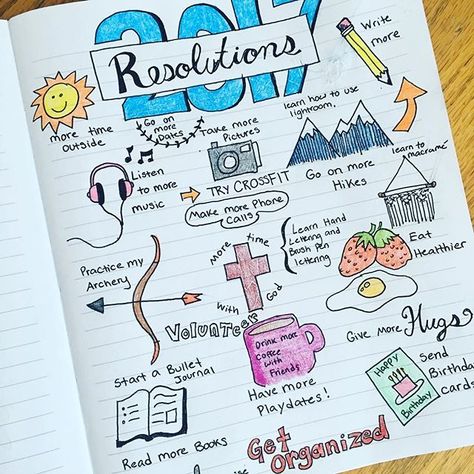 2017
Resolutions
Write
more
more time
outside
Go on
more
Dates
Take more
Pictures
learn how to use
lightroom
Listen
to more
music
TRY CROSSFIT
Make more Phone
Calls
Go on more
Hikes
learn to
macramé
Practice my
Archery
More time
with God
Learn Hand
Lettering and
Brush Pen
lettering
Eat
Healthier
VOLUNTEER
Drink more
Coffee
with
Friends
Give more Hugs
Start a Bullet
Journal
Have more
Playdates!
Happy
Birthday
Send
Birthday
cards
Read more Books
Get
Organized